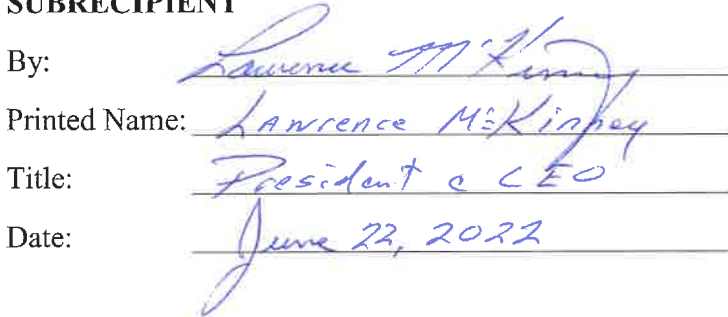 SUBRECIPIENT
By: Lawrence McKinney
Printed Name: Lawrence McKinney
Title: President & CEO
Date: June 22, 2022